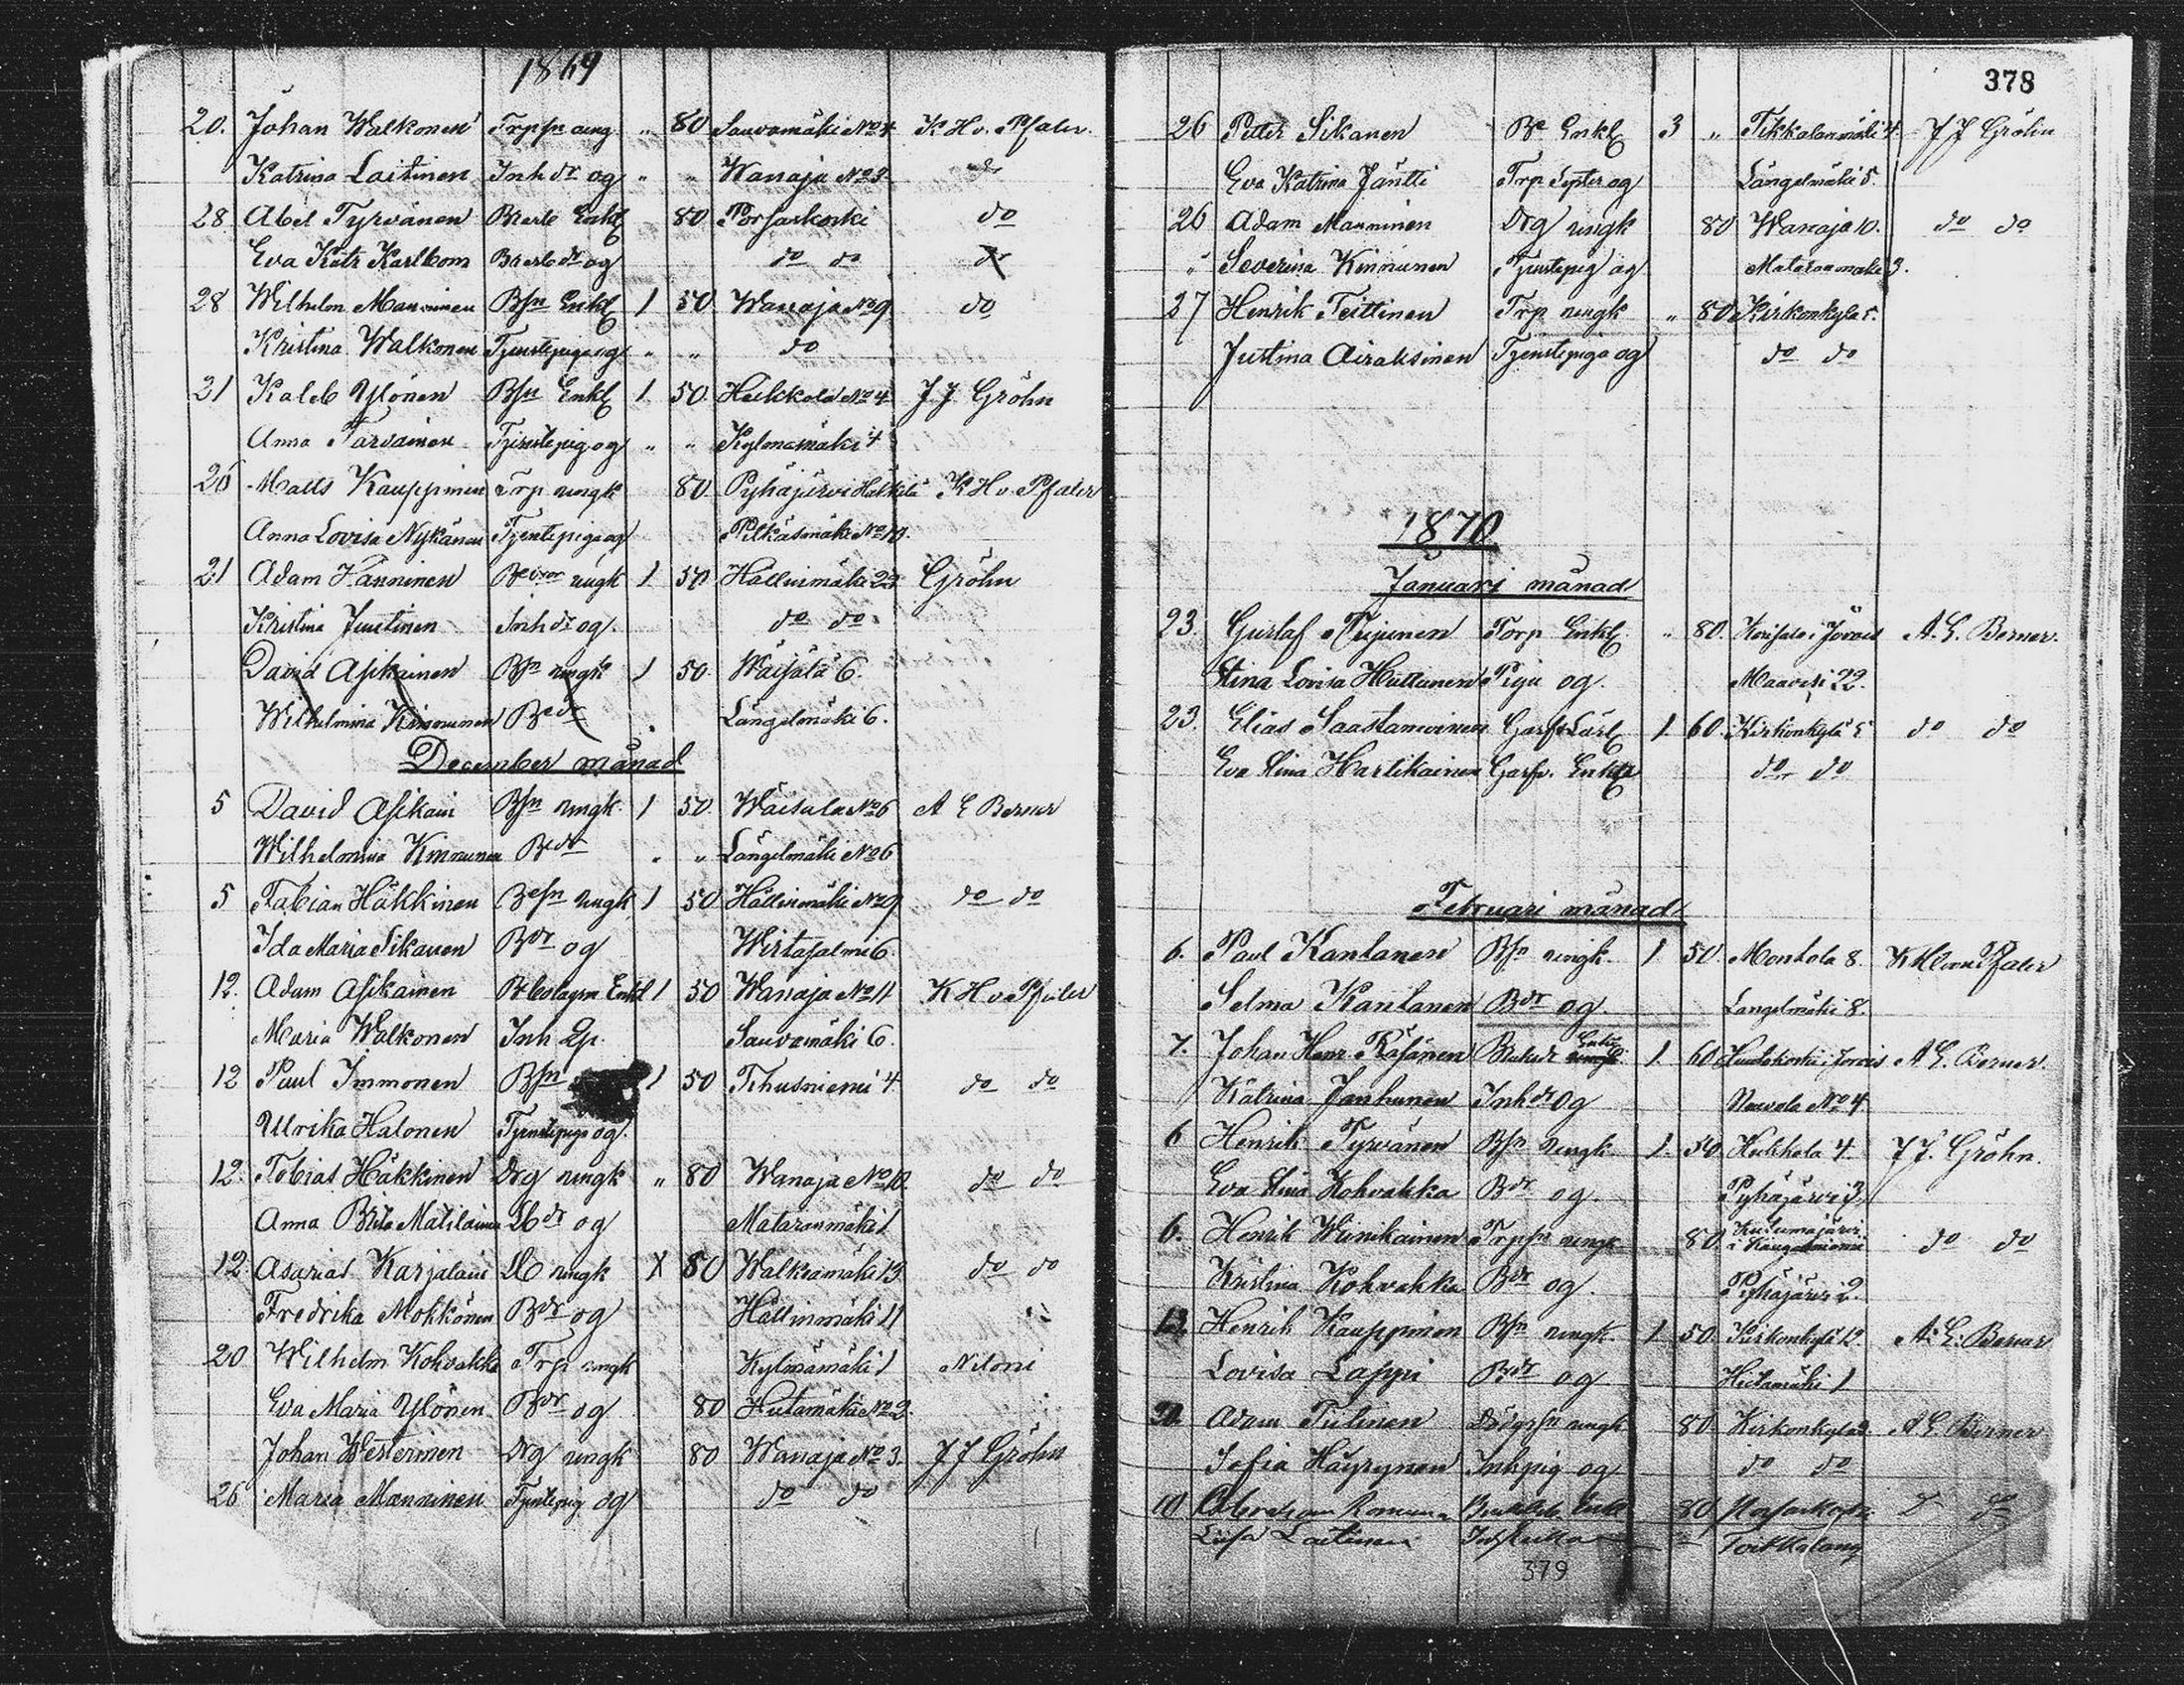 1869
20. Johan Walkonen Trpsn ung. " 80 Sauvamäki No 4 K Hv. Pfaler.
Katrina Laitinen Inh dr og " " Wanaja No 3 do
28 Abel Tyrvänen Enkl 80 Porsaskoski do
Eva Katr Karlbom og do do do
28 Wilhelm Manninen Bsn Enkl 1 50 Wanaja No 9 do
Kristina Walkonen Tjenstepiga og " " do
21 Kaleb Ylönen Bsn Enkl 1. 50. Heikkola No 4 J. J. Gröhn
Anna Tarvainen Tjenstepig og " " Kylmämäki 4
26 Matts Kauppinen Trp ungk 80. Pyhäjärvi K Hv. Pfaler
Anna Lovisa Nykänen Tjenstepiga og Pilkäsmäki No 10.
21 Adam Hänninen ungk 1 50 Hällinmäki 23 Gröhn
Kristina Juutinen Inh dr og. do do
David Asikainen Bsn ungk 1 50. Waisala 6.
Wilhelmina Kinnunen B dr " Längelmäki 6.
December månad
5 David Asikain Bsn ungk. 1 50. Waisala No 6 A E Berner
Wilhelmina Kinnunen B dr " " Längelmäki No 6
5 Fabian Häkkinen Besn ungk 1 50 Hällinmäki No 9 do do
Ida Maria Sikanen Bdr og Wirtasalmi 6.
12. Adam Asikainen Enkl 1 50 Wanaja No 11 K H v Pfaler
Maria Walkonen Inh Sauvamäki 6.
12 Paul Immonen Bsn 1 50 Tihusniemi 4 do do
Ulrika Halonen Tjenstepiga og.
12. Tobias Häkkinen Drg ungk " 80 Wanaja No 10. do do
Anna Brita Matilainen dr og Mataramäki 1
12. Asarias Karjalain ungk X 80 Walkiamäki 13 do do
Fredrika Mokkönen Bdr og Hällinmäki 11
20 Wilhelm Kohvakka Trp ungk Kylmämäki 1 Niloni
Eva Maria Ylönen Bdr og 80 Hiitamäki No 2.
Johan Westerinen Drg ungk 80 Wanaja No 3. J J Gröhn
26 Maria Manninen Tjenstepig og do do
378
26 Petter Sikanen Be Enkl 3 " Tikkalanmäki 4. J J Gröhn
Eva Katrina Jäntti Trp og Längelmäki 5.
26 Adam Manninen Drg ungk 80 Wanaja 10. do do
" Severina Kinnunen Tjenstepig og Mataramäki 3.
27 Henrik Teittinen Trp ungk " 80 Kirkonkyla 5.
Justina Airaksinen Tjenstepiga og do do
1870
Januari månad
23. Gustaf Pujunen Torp Enkl. " 80. Jorois A. E. Berner.
Stina Lovisa Huttunen Piga og. Maavesi 22.
23. Elias Saastamoinen 1. 60. Kirkonkylä 5 do do
Eva Stina Hartikainen Enka do do
Februari månad
6. Paul Kantanen Bsn ungk. 1 50. Montola 8. K H von Pfaler
Selma Kantanen Bdr og. Längelmäki 8.
7. Johan Henr. Räsänen Enkl 1. 60 Huutokoski i Jorois A E. Berner.
Katrina Janhunen Inh dr og No 4.
6 Henrik Tyrvänen Bsn ungk 1. 50. Heikkola 4. J J. Gröhn.
Eva Stina Kohvakka Bdr og. Pyhäjärvi 3
6. Henrik Wiinikainen Trpsn ungk 80 Kutumajärvi i Kangasniemi do do
Kristina Kohvakka Bdr og. Pyhäjärvi 2.
13. Henrik Kauppinen Bsn ungk. 1 50. Kirkonkylä 12. A. E. Berner
Lovisa Lappi Bdr og Hiitamäki 1
20. Adam Tiitinen ungk 80. Kirkonkylä A E. Berner
Sofia Häyrynen Inhpig og do do
10 80
Laitinen
379